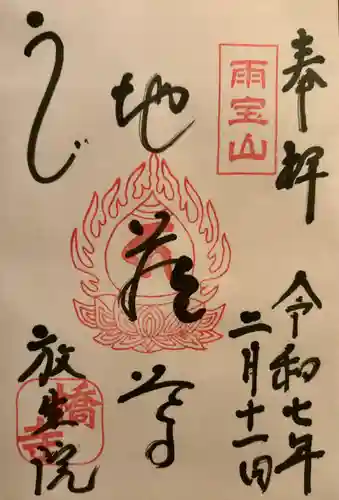 奉拝
令和七年
二月十一日
雨宝山
地蔵尊
うじ
放生院
橋寺